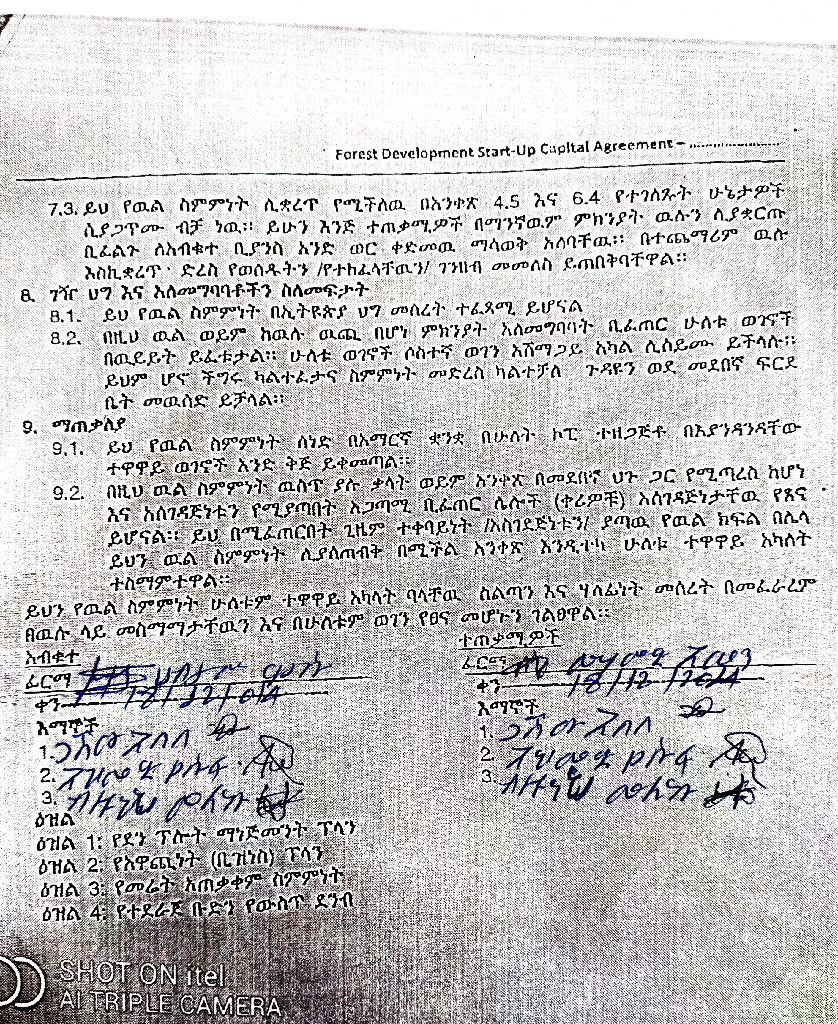 Forest Development Start-Up Capital Agreement – ........................
7.3. ይህ የዉል ስምምነት ሊቋረጥ የሚችለዉ በአንቀጽ 4.5 እና 6.4 የተገለጹት ሁኔታዎች
ሲያጋጥሙ ብቻ ነዉ፡፡ ይሁን እንጅ ተጠቃሚዎች በማንኛዉም ምክንያት ዉሉን ሲያቋርጡ
ቢፈልጉ ለአብቁተ ቢያንስ አንድ ወር ቀድመዉ ማሳወቅ አለባቸዉ፡፡ በተጨማሪም ዉሉ
እስኪቋረጥ ድረስ የወሰዱትን /የተከፈላቸዉን/ ገንዘብ መመለስ ይጠበቅባቸዋል፡፡
8. ገዥ ህግ እና አለመግባባቶችን ስለመፍታት
8.1. ይህ የዉል ስምምነት በኢትዩጵያ ህግ መሰረት ተፈጻሚ ይሆናል
8.2. በዚህ ዉል ወይም ከዉሉ ዉጪ በሆነ ምክንያት አለመግባባት ቢፈጠር ሁለቱ ወገኖች
በዉይይት ይፈቱታል፡፡ ሁለቱ ወገኖች ሶስተኛ ወገን አሸማጋይ አካል ሊሰይሙ ይችላሉ፡፡
ይህም ሆኖ ችግሩ ካልተፈታና ስምምነት መድረስ ካልተቻለ ጉዳዩን ወደ መደበኛ ፍርደ
ቤት መዉሰድ ይቻላል፡፡
9. ማጠቃለያ
9.1. ይህ የዉል ስምምነት ሰነድ በአማርኛ ቋንቋ በሁለት ኮፒ ተዘጋጅቶ በእያንዳንዳቸው
ተዋዋይ ወገኖች አንድ ቅጅ ይቀመጣል፡፡
9.2. በዚህ ዉል ስምምነት ዉስጥ ያሉ ቃላት ወይም አንቀጽ በመደበኛ ህጉ ጋር የሚጣረስ ከሆነ
እና አስገዳጅነቱን የሚያጣበት አጋጣሚ ቢፈጠር ሌሎች (ቀሪዎቹ) አስገዳጅነታቸዉ የጸና
ይሆናል፡፡ ይህ በሚፈጠርበት ጊዜም ተቀባይነት /አስገደጅነቱን/ ያጣዉ የዉል ክፍል በሌላ
ይህን ዉል ስምምነት ሊያስጠብቅ በሚችል አንቀጽ እንዲተካ ሁለቱ ተዋዋይ አካለት
ተስማምተዋል፡፡
ይህን የዉል ስምምነት ሁለቱም ተዋዋይ አካላት ባላቸዉ ስልጣን እና ሃላፊነት መሰረት በመፈራረም
በዉሉ ላይ መስማማታቸዉን እና በሁለቱም ወገን የፀና መሆኑን ገልፀዋል፡፡
አብቁተ
ተጠቃሚዎች
ፊርማ
ፊርማ
ቀን 18/12/014
ቀን 18/12/2014
እማኞች
እማኞች
1.
2.
3.
1.
2.
3.
ዕዝል
ዕዝል 1: የደን ፕሎት ማነጅመንት ፕላን
ዕዝል 2: የአዋጪነት (ቢዝነስ) ፕላን
ዕዝል 3: የመሬት አጠቃቀም ስምምነት
ዕዝል 4: የተደራጀ ቡድን የውስጥ ደንብ
SHOT ON itel
AI TRIPLE CAMERA